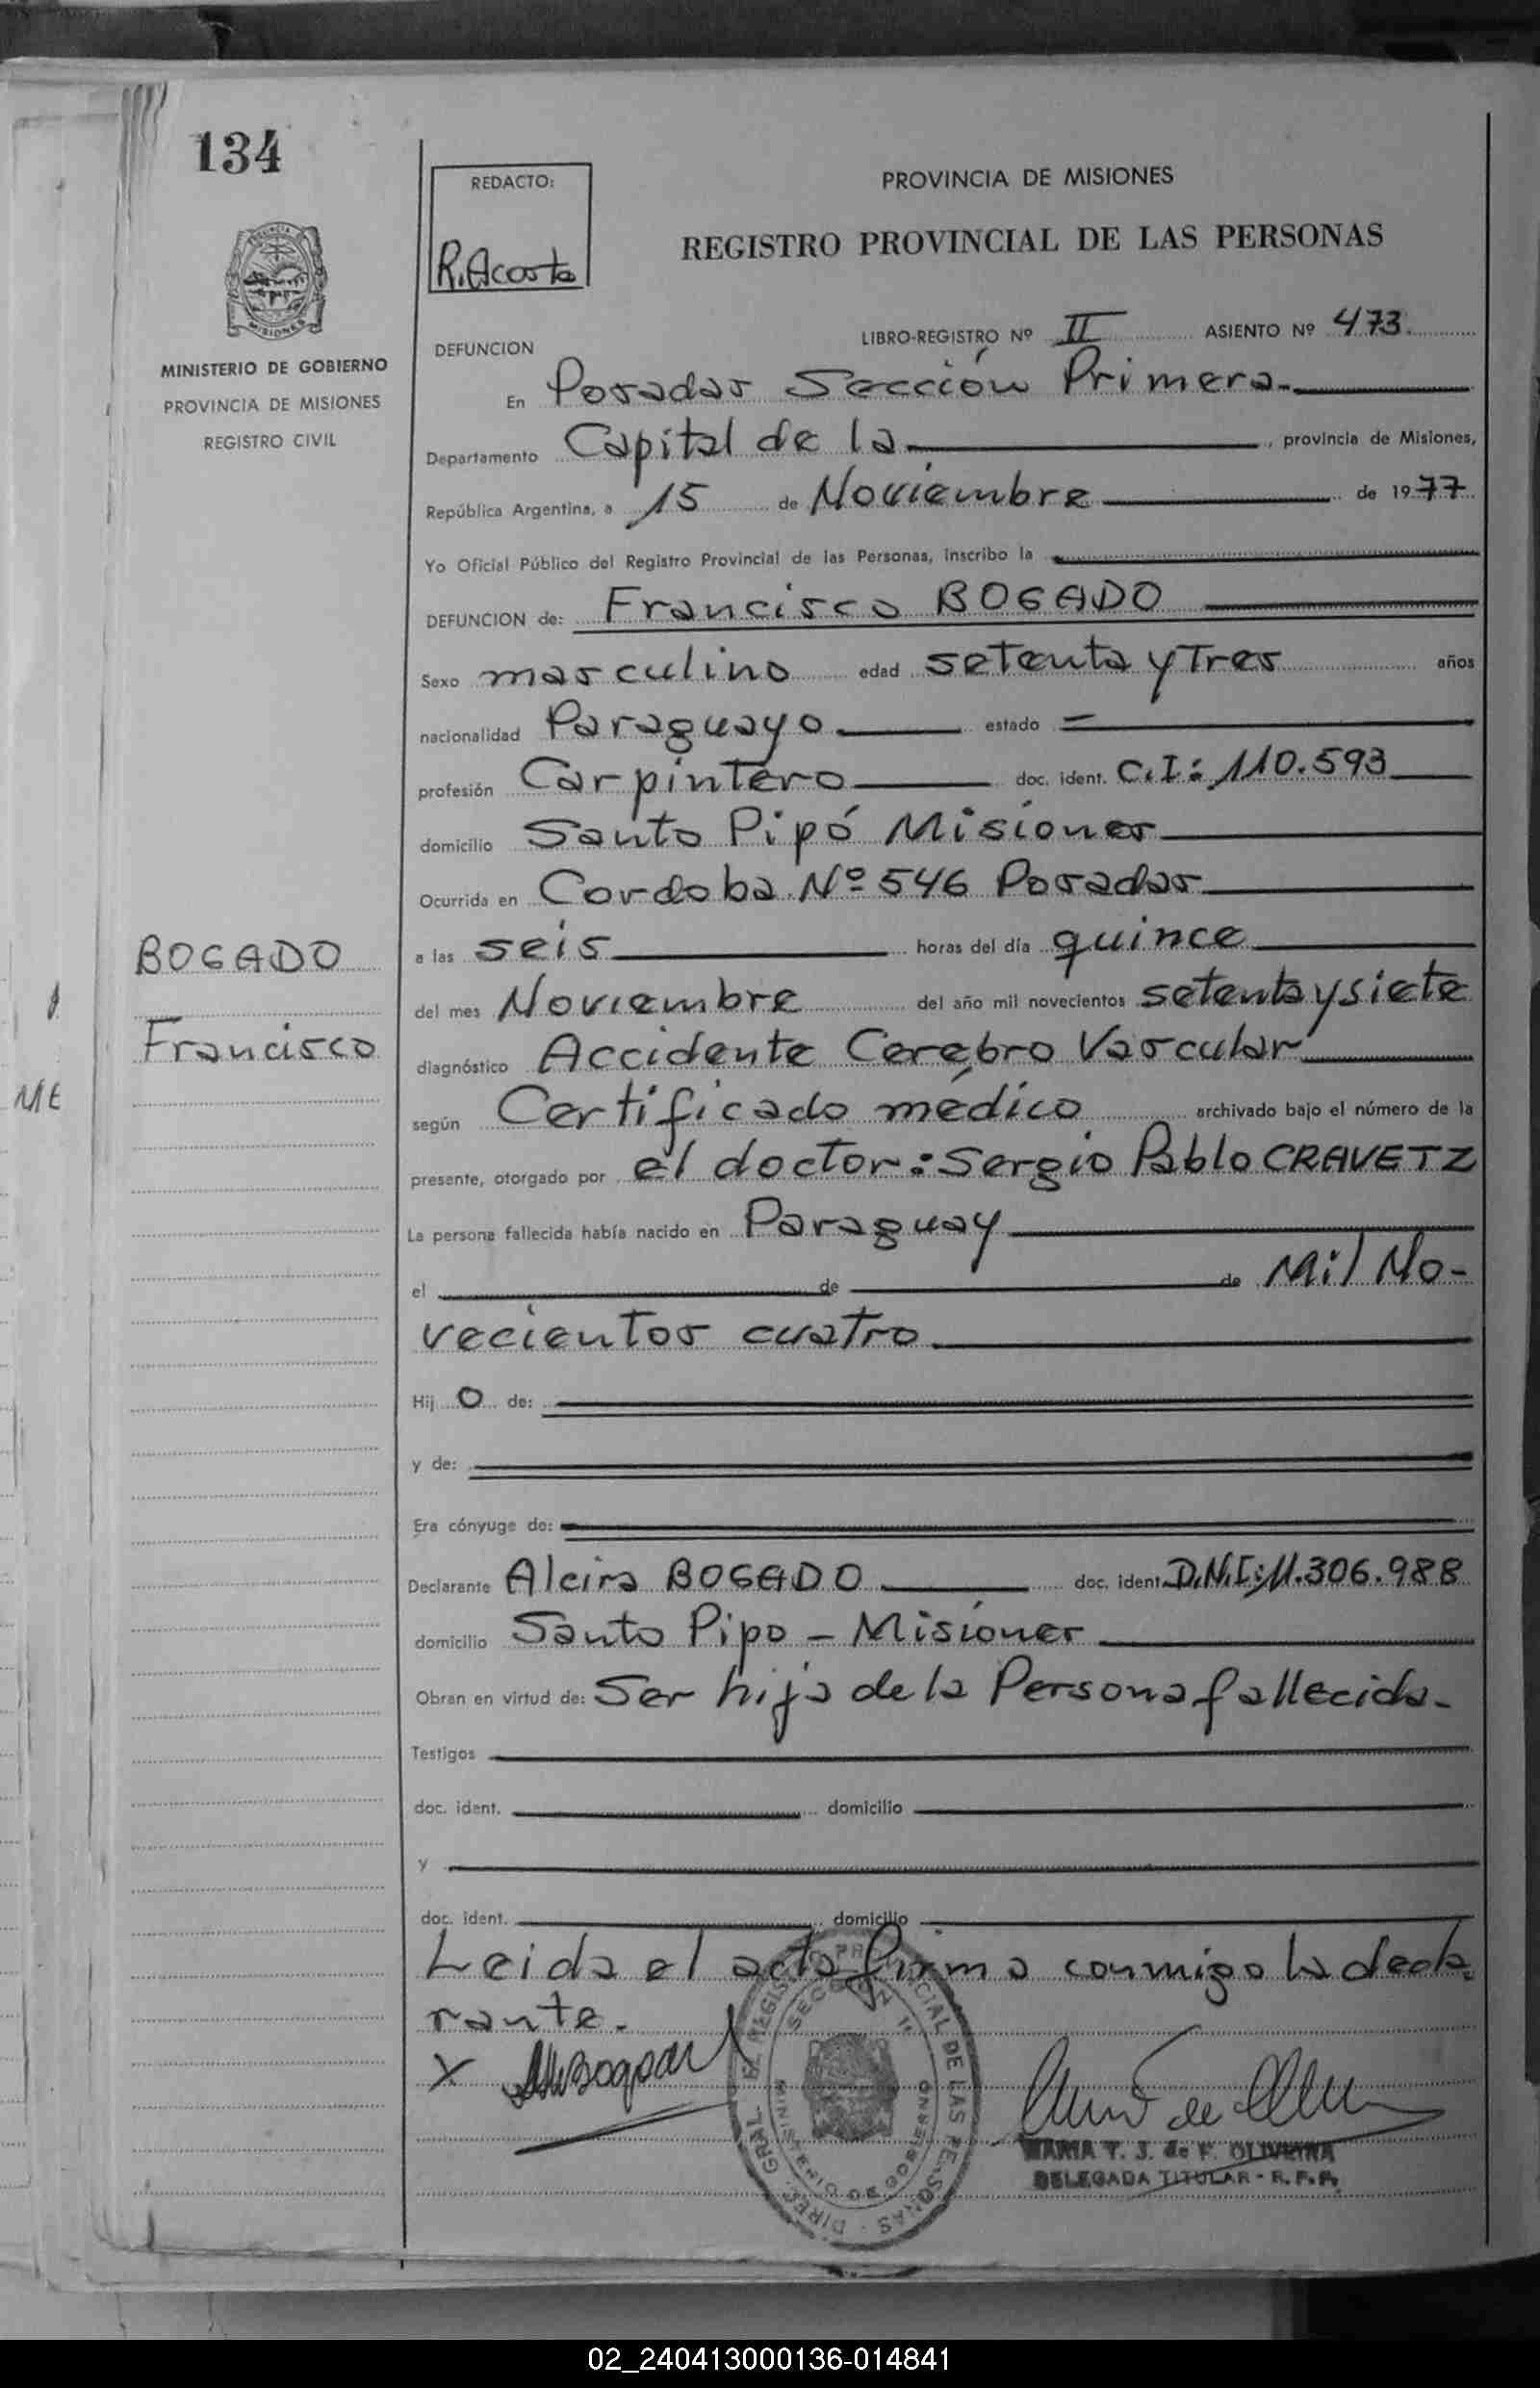 134
REDACTO:
R. Acosta
PROVINCIA DE MISIONES
REGISTRO PROVINCIAL DE LAS PERSONAS
MISIONES
MINISTERIO DE GOBIERNO
PROVINCIA DE MISIONES
REGISTRO CIVIL
LIBRO-REGISTRO Nº II ASIENTO Nº 473
DEFUNCION
En Posadas Sección Primera.
Departamento Capital de la, provincia de Misiones,
República Argentina, a 15 de Noviembre de 1977
Yo Oficial Público del Registro Provincial de las Personas, inscribo la
DEFUNCION de: Francisco BOGADO
Sexo masculino edad setenta y Tres años
nacionalidad Paraguayo estado =
profesión Carpintero doc. ident. C.I: 110.593
domicilio Santo Pipó Misiones
Ocurrida en Cordoba Nº 546 Posadas
a las seis horas del día quince
del mes Noviembre del año mil novecientos setenta y siete
diagnóstico Accidente Cerebro Vascular
según Certificado médico archivado bajo el número de la
presente, otorgado por el doctor: Sergio Pablo CRAVETZ
La persona fallecida había nacido en Paraguay
el de de Mil No-
vecientos cuatro
Hij o de:
y de:
Era cónyuge de:
Declarante Alcira BOGADO doc. ident. D.N.I: 11.306.988
domicilio Santo Pipo - Misiones
Obran en virtud de: Ser hija de la Persona fallecida-
Testigos
doc. ident. domicilio
y
doc. ident. domicilio
Leida el acta firma conmigo la decla-
rante.
X
BOGADO
Francisco
ME
MARIA T. J. de F. OLIVEIRA
DELEGADA TITULAR - R. P. P.
DIREC. GRAL. REGISTRO PROVINCIAL DE LAS PERSONAS
SECCION 1ª
MINISTERIO DE GOBIERNO
02_240413000136-014841